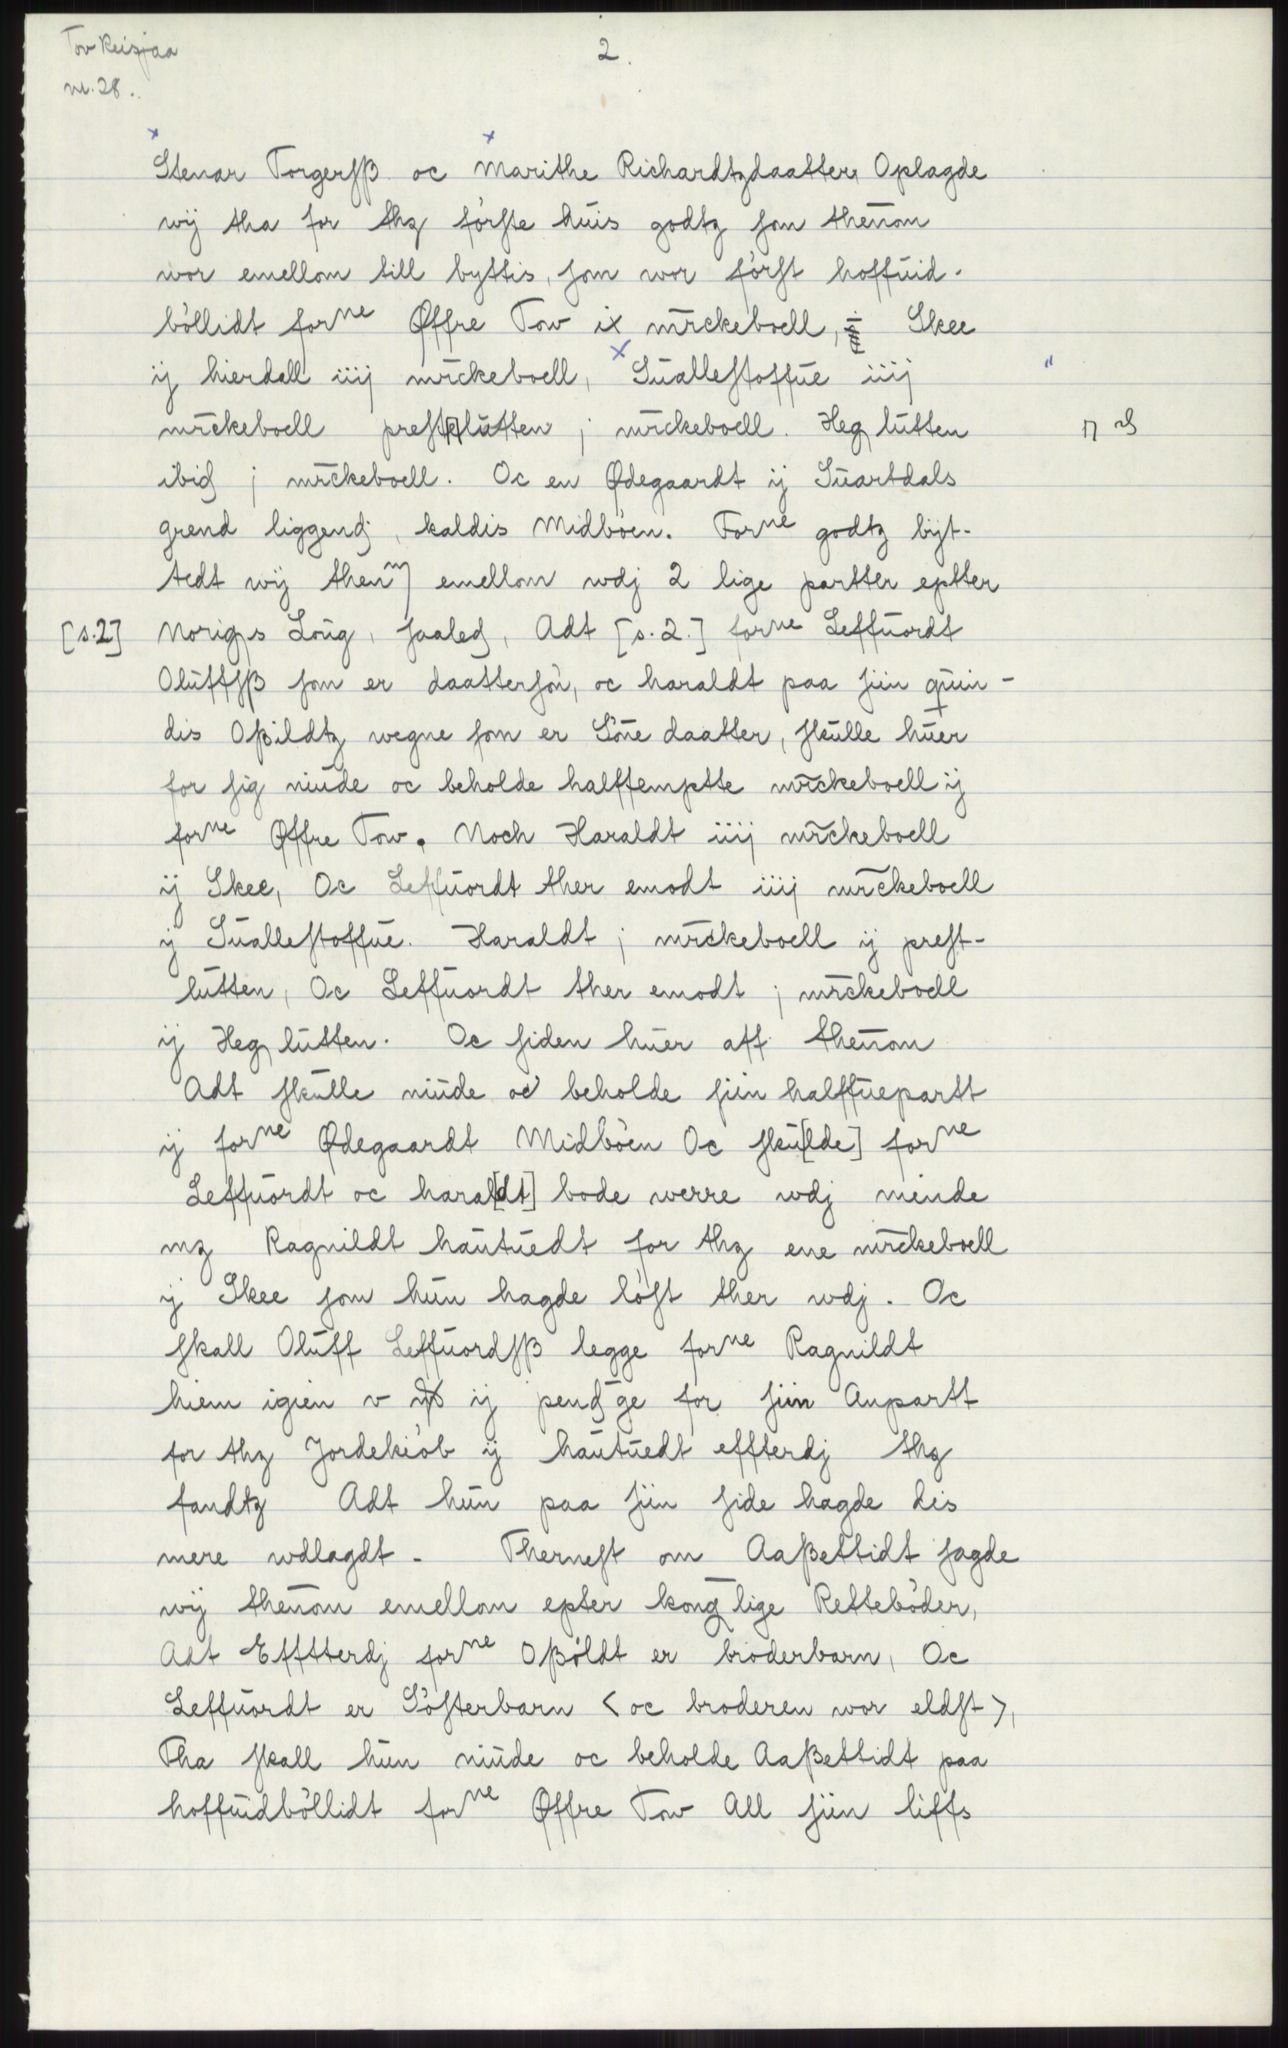 Tov Reisjaa
2.
nr. 28.
Stenar Torgersß oc Marithe Richardtzdaatter, Oplagde
wij tha for thz förste huis godtz som thenom
wor emellom till byttis, som wor först hoffuid-
böllidt forne Øffre Tow ix mrckeboell, Skee
ij hierdall iiij mrckeboell, Sualestoffue iiij
mrckeboell prestlutten j mrckeboell. Heg lutten
ibid j mrckeboell. Oc en Ødegaardt ij Suartdals
grend liggend, kaldis Midböen. Forne godtz byt-
tedt wij then emellom wdj 2 lige partter eptter
[s.2] Norigs Loug, saaled, Adt [s.2.] forne Leffuordt
Oluffsß som er daattersön, oc haraldt paa siin quin-
dis Oßildtz wegne som er Söne daatter, skulle huer
for sig niude oc beholde halffemptte mrckeboell ij
forne Øffre Tow. Noch Haraldt iiij mrckeboell
ij Skee, Oc Leffuordt ther emodt iiij mrckeboell
ij Suallestoffue. Haraldt j mrckeboell ij prest-
lutten, Oc Leffuordt ther emodt j mrckeboell
ij Heg lutten. Oc siden huer aff thenom
Adt skulle niude oc beholde siin halffuepartt
ij forne Ødegaardt Midböen Oc sku[lde] forne
Leffuordt oc hara[ldt] bode werre wdj minde
mz Ragnildt hautuedt for thz ene mrckeboell
ij Skee som hun hagde löst ther wdj. Oc
skall Oluff Leffuordsß legge forne Ragnildt
hiem igien v ij pend ge for siin Anpartt
for thz Jordekiöb ij hautuedt effterdj thz
fandtz Adt hun paa siin side hagde dis
mere wdlagdt. Thernest om Aaßettidt sagde
wij thenom emellom epter konglige Retteböder,
Adt Effterdj forne Oßöldt er broderbarn, Oc
Leffuordt er Sösterbarn <oc broderen wor eldst>,
Tha skall hun niude oc beholde Aaßettidt paa
hoffuidböllidt forne Øffre Tow All siin liffs